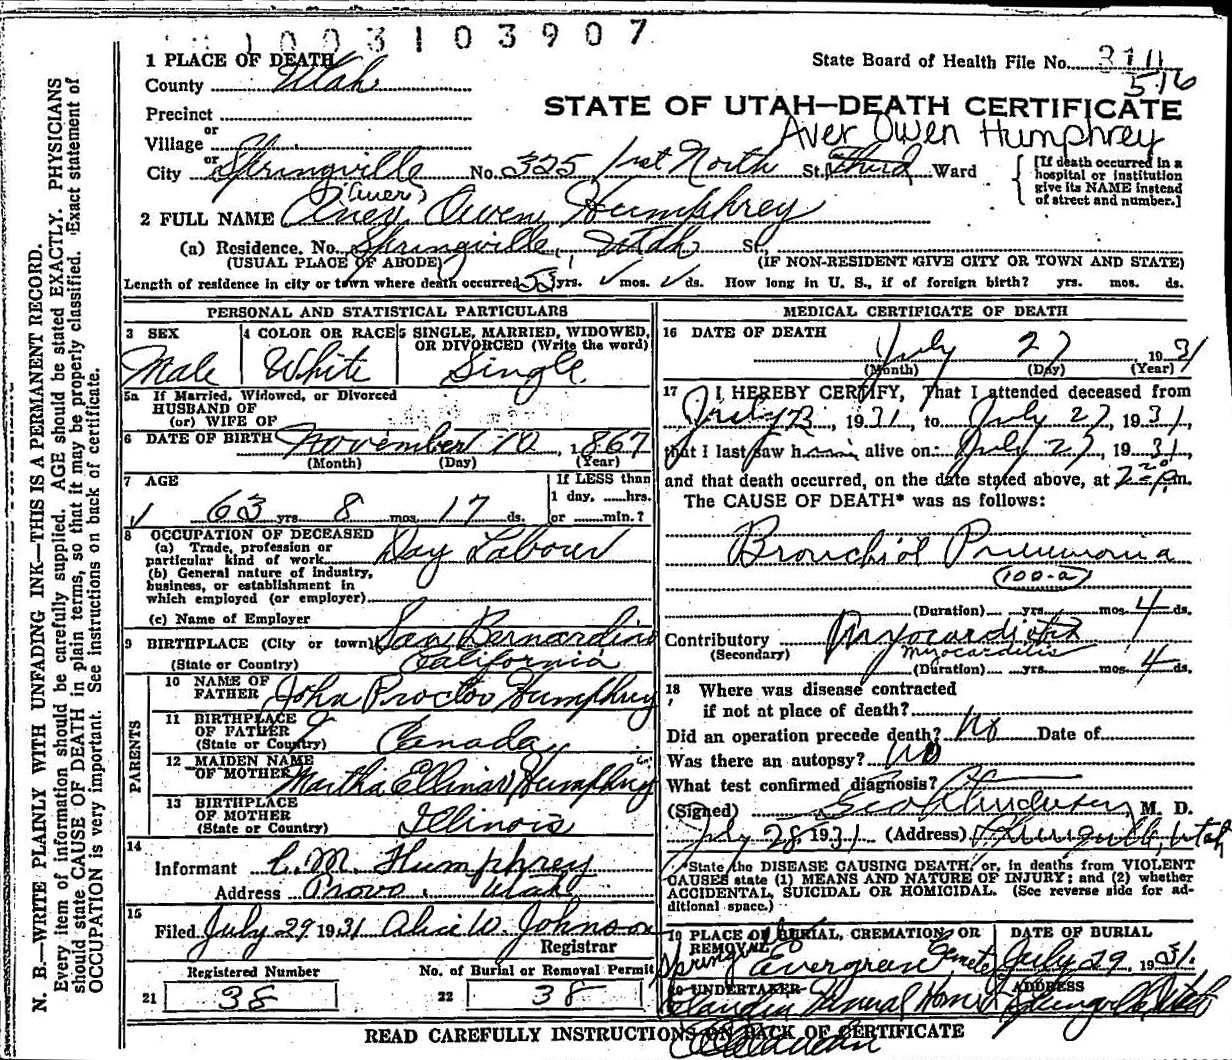 1003103907
1 PLACE OF DEATH
State Board of Health File No. 311
516
County Utah
STATE OF UTAH—DEATH CERTIFICATE
Precinct
or
Aver Owen Humphrey
Village
or
City Springville No. 325 1st North St. Third Ward
[If death occurred in a hospital or institution give its NAME instead of street and number.]
(Aver)
2 FULL NAME Owen Humphrey
(a) Residence. No. Springville, Utah St.,
(USUAL PLACE OF ABODE) (IF NON-RESIDENT GIVE CITY OR TOWN AND STATE)
Length of residence in city or town where death occurred 53 yrs. mos. ds. How long in U. S., if of foreign birth? yrs. mos. ds.
PERSONAL AND STATISTICAL PARTICULARS
3 SEX
Male
4 COLOR OR RACE
White
5 SINGLE, MARRIED, WIDOWED, OR DIVORCED (Write the word)
Single
5a If Married, Widowed, or Divorced
HUSBAND OF
(or) WIFE OF
6 DATE OF BIRTH November 10, 1867
(Month) (Day) (Year)
7 AGE
If LESS than
1 day, ......hrs.
63 yrs. 8 mos. 17 ds. or ......min.?
8 OCCUPATION OF DECEASED
(a) Trade, profession or particular kind of work Day Labour
(b) General nature of industry, business, or establishment in which employed (or employer)
(c) Name of Employer
9 BIRTHPLACE (City or town) San Bernardino
(State or Country) California
PARENTS
10 NAME OF FATHER John Proctor Humphrey
11 BIRTHPLACE OF FATHER (State or Country) Canada
12 MAIDEN NAME OF MOTHER Martha Ellinor Humphrey
13 BIRTHPLACE OF MOTHER (State or Country) Illinois
14
Informant C. M. Humphrey
Address Provo, Utah
15
Filed July 29 1931 Alice W. Johnson
Registrar
Registered Number
21 38
No. of Burial or Removal Permit
22 38
MEDICAL CERTIFICATE OF DEATH
16 DATE OF DEATH
July 27 1931
(Month) (Day) (Year)
17 I HEREBY CERTIFY, That I attended deceased from
July 23, 1931, to July 27, 1931,
that I last saw him alive on July 27, 1931,
and that death occurred, on the date stated above, at 2 20 p.m.
The CAUSE OF DEATH* was as follows:
Bronchiol Pneumonia
(100-a)
(Duration) yrs. mos. 4 ds.
Contributory Myocarditis
(Secondary) myocarditis
(Duration) yrs. mos. 4 ds.
18 Where was disease contracted
if not at place of death?
Did an operation precede death? No Date of
Was there an autopsy? No
What test confirmed diagnosis?
(Signed) M. D.
July 28, 1931 (Address) Springville, Utah
*State the DISEASE CAUSING DEATH, or, in deaths from VIOLENT
CAUSES state (1) MEANS AND NATURE OF INJURY; and (2) whether
ACCIDENTAL, SUICIDAL OR HOMICIDAL. (See reverse side for additional space.)
19 PLACE OF BURIAL, CREMATION, OR REMOVAL
Springville Evergreen Cemetery
DATE OF BURIAL
July 29, 1931.
20 UNDERTAKER
Funeral Home
ADDRESS
Springville, Utah
READ CAREFULLY INSTRUCTIONS ON BACK OF CERTIFICATE
N. B.—WRITE PLAINLY WITH UNFADING INK—THIS IS A PERMANENT RECORD.
Every item of information should be carefully supplied. AGE should be stated EXACTLY. PHYSICIANS
should state CAUSE OF DEATH in plain terms, so that it may be properly classified. Exact statement of
OCCUPATION is very important. See instructions on back of certificate.